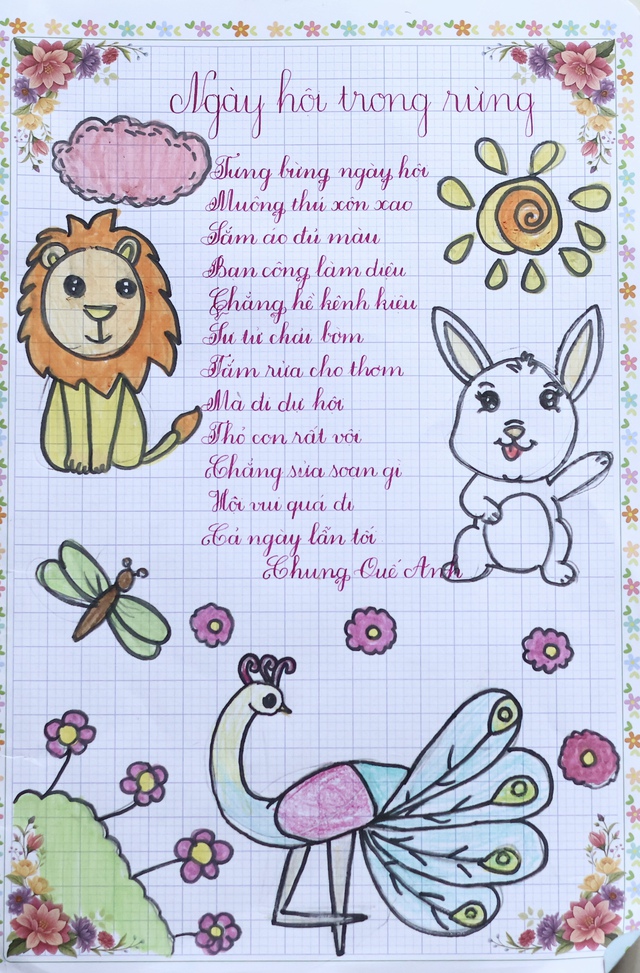 Ngày hội trong rừng
Tưng bừng ngày hội
Muông thú xôn xao
Sắm áo đủ màu
Bạn công làm điệu
Chẳng hề kênh kiệu
Sư tử chải bờm
Tắm rửa cho thơm
Mà đi dự hội
Thỏ con rất vội
Chẳng sửa soạn gì
Hội vui quá đi
Cả ngày lẫn tối
Chung Quế Anh